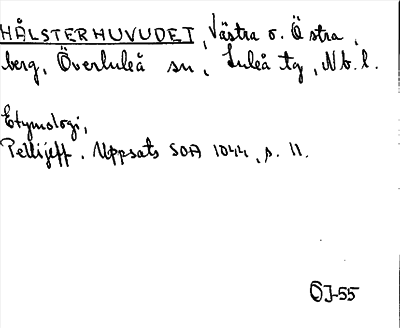 HÅLSTERHUVUDET, Västra o. Östra,
berg, Överluleå sn, Luleå tg, Nb. l.
Etymologi,
Pellijeff. Uppsats SOA 1044, s. 11.
ÖJ-55